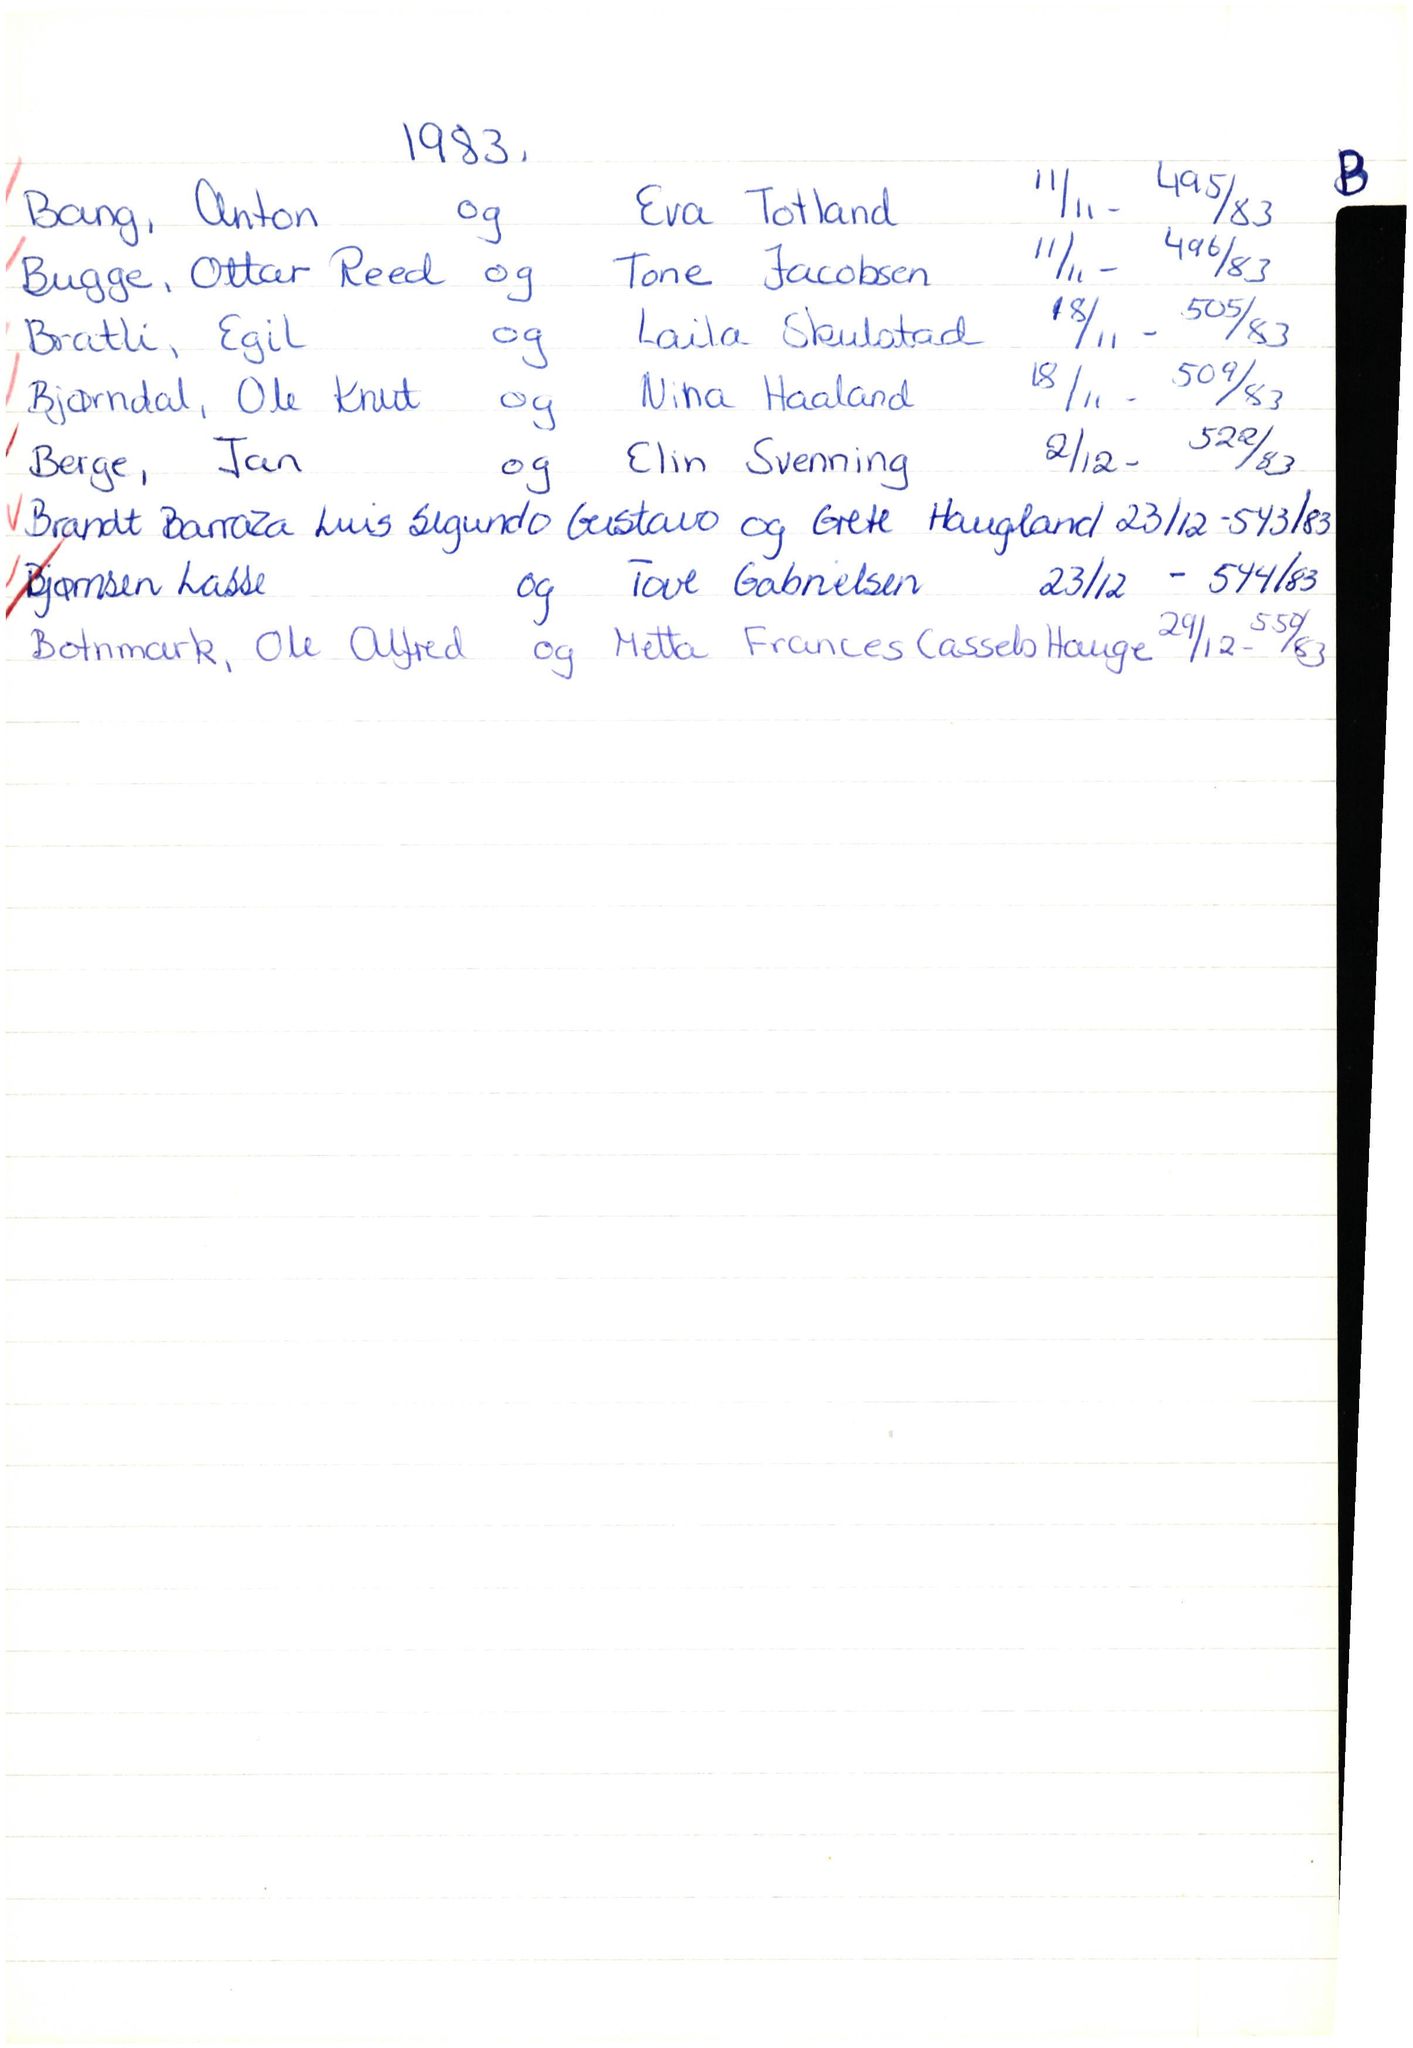 1983.
B
Bang, Anton og Eva Totland 11/11 - 495/83
Bugge, Ottar Reed og Tone Jacobsen 11/11 - 496/83
Bratli, Egil og Laila Skulstad 18/11 - 505/83
Bjørndal, Ole Knut og Nina Haaland 18/11 - 509/83
Berge, Jan og Elin Svenning 2/12 - 522/83
Brandt Barraza Luis Segundo Gustavo og Grete Haugland 23/12 - 543/83
Bjørnsen Lasse og Tove Gabrielsen 23/12 - 544/83
Botnmark, Ole Alfred og Metta Frances Cassels Hauge 29/12 - 550/83